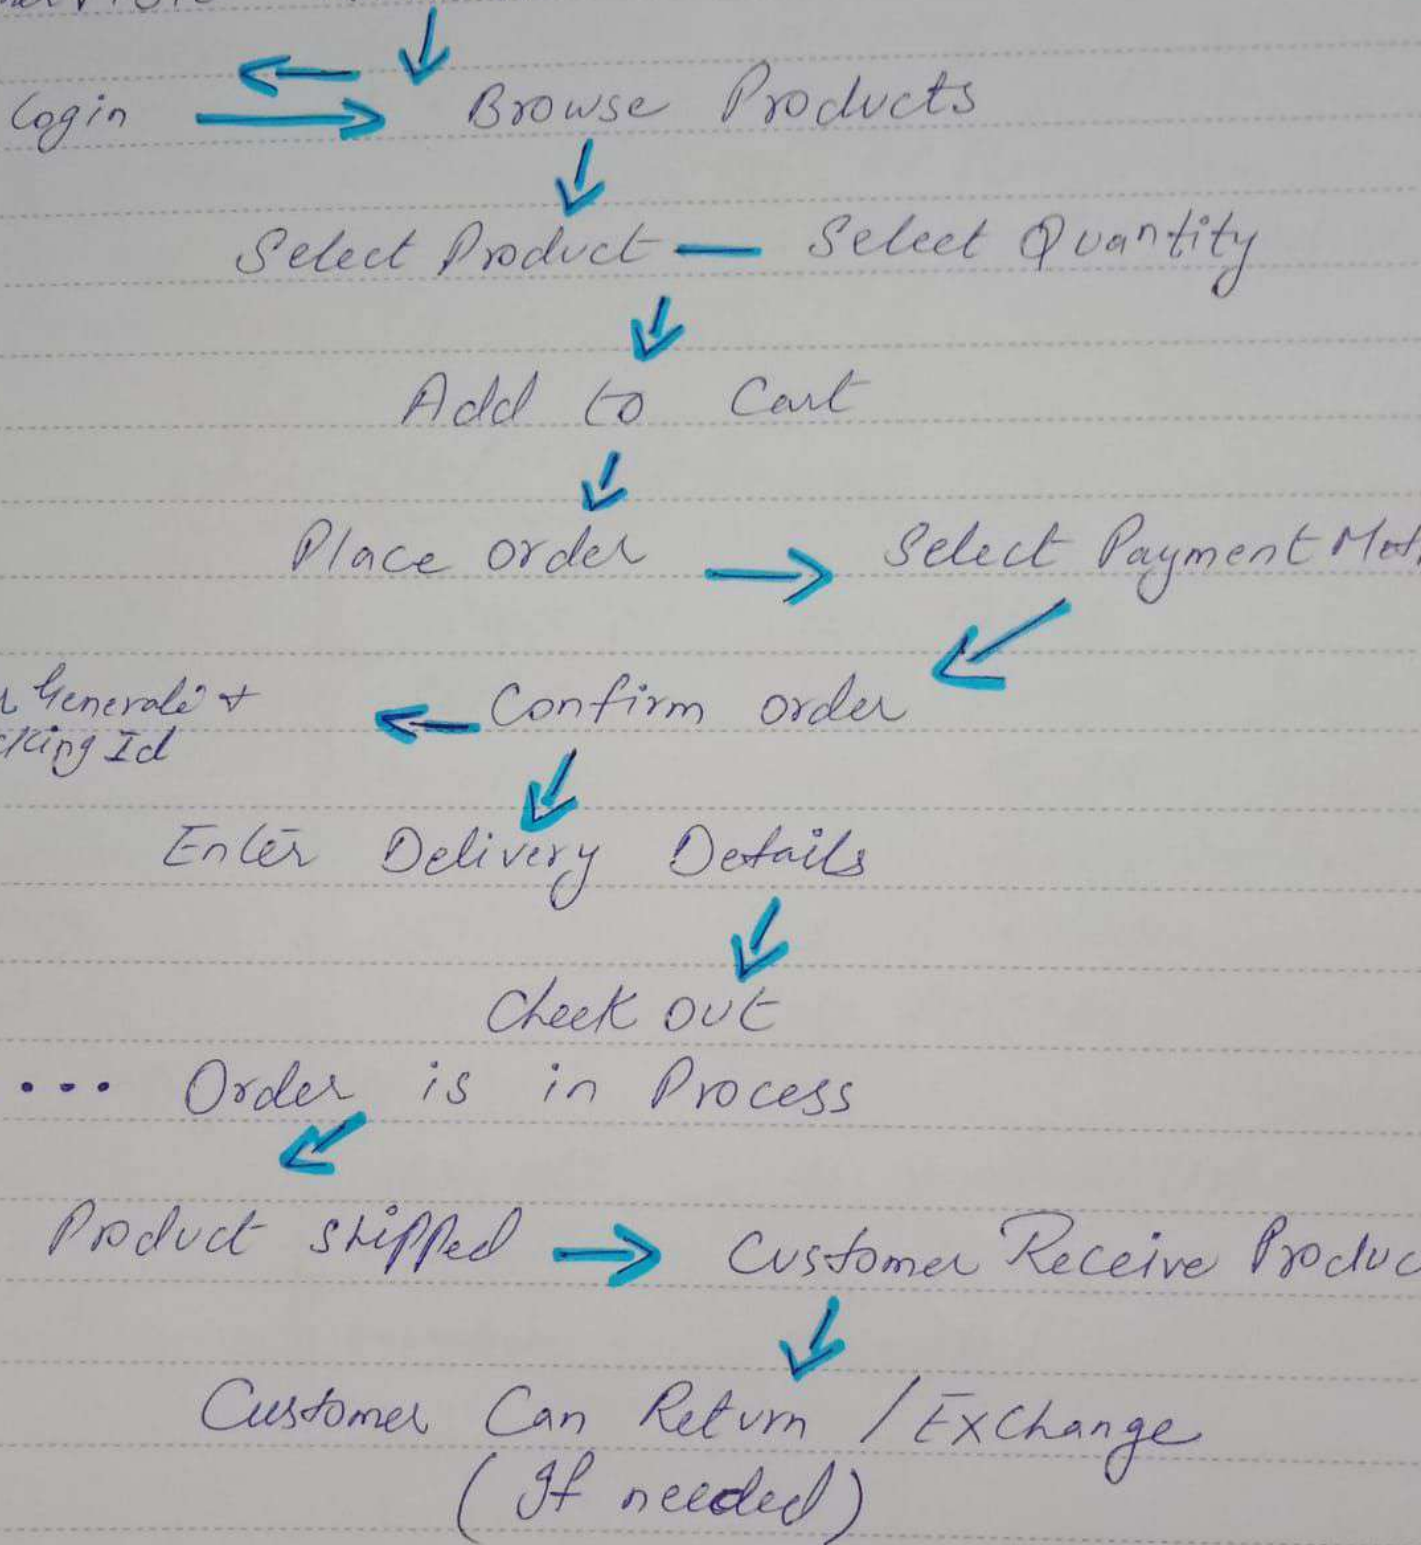 Login Browse Products
Select Product — Select Quantity
Add to Cart
Place order Select Payment
Generate &
Confirm order
king Id
Enter Delivery Details
Check out
... Order is in Process
Product Shipped Customer Receive Produc
Customer Can Return / Exchange
(If needed)